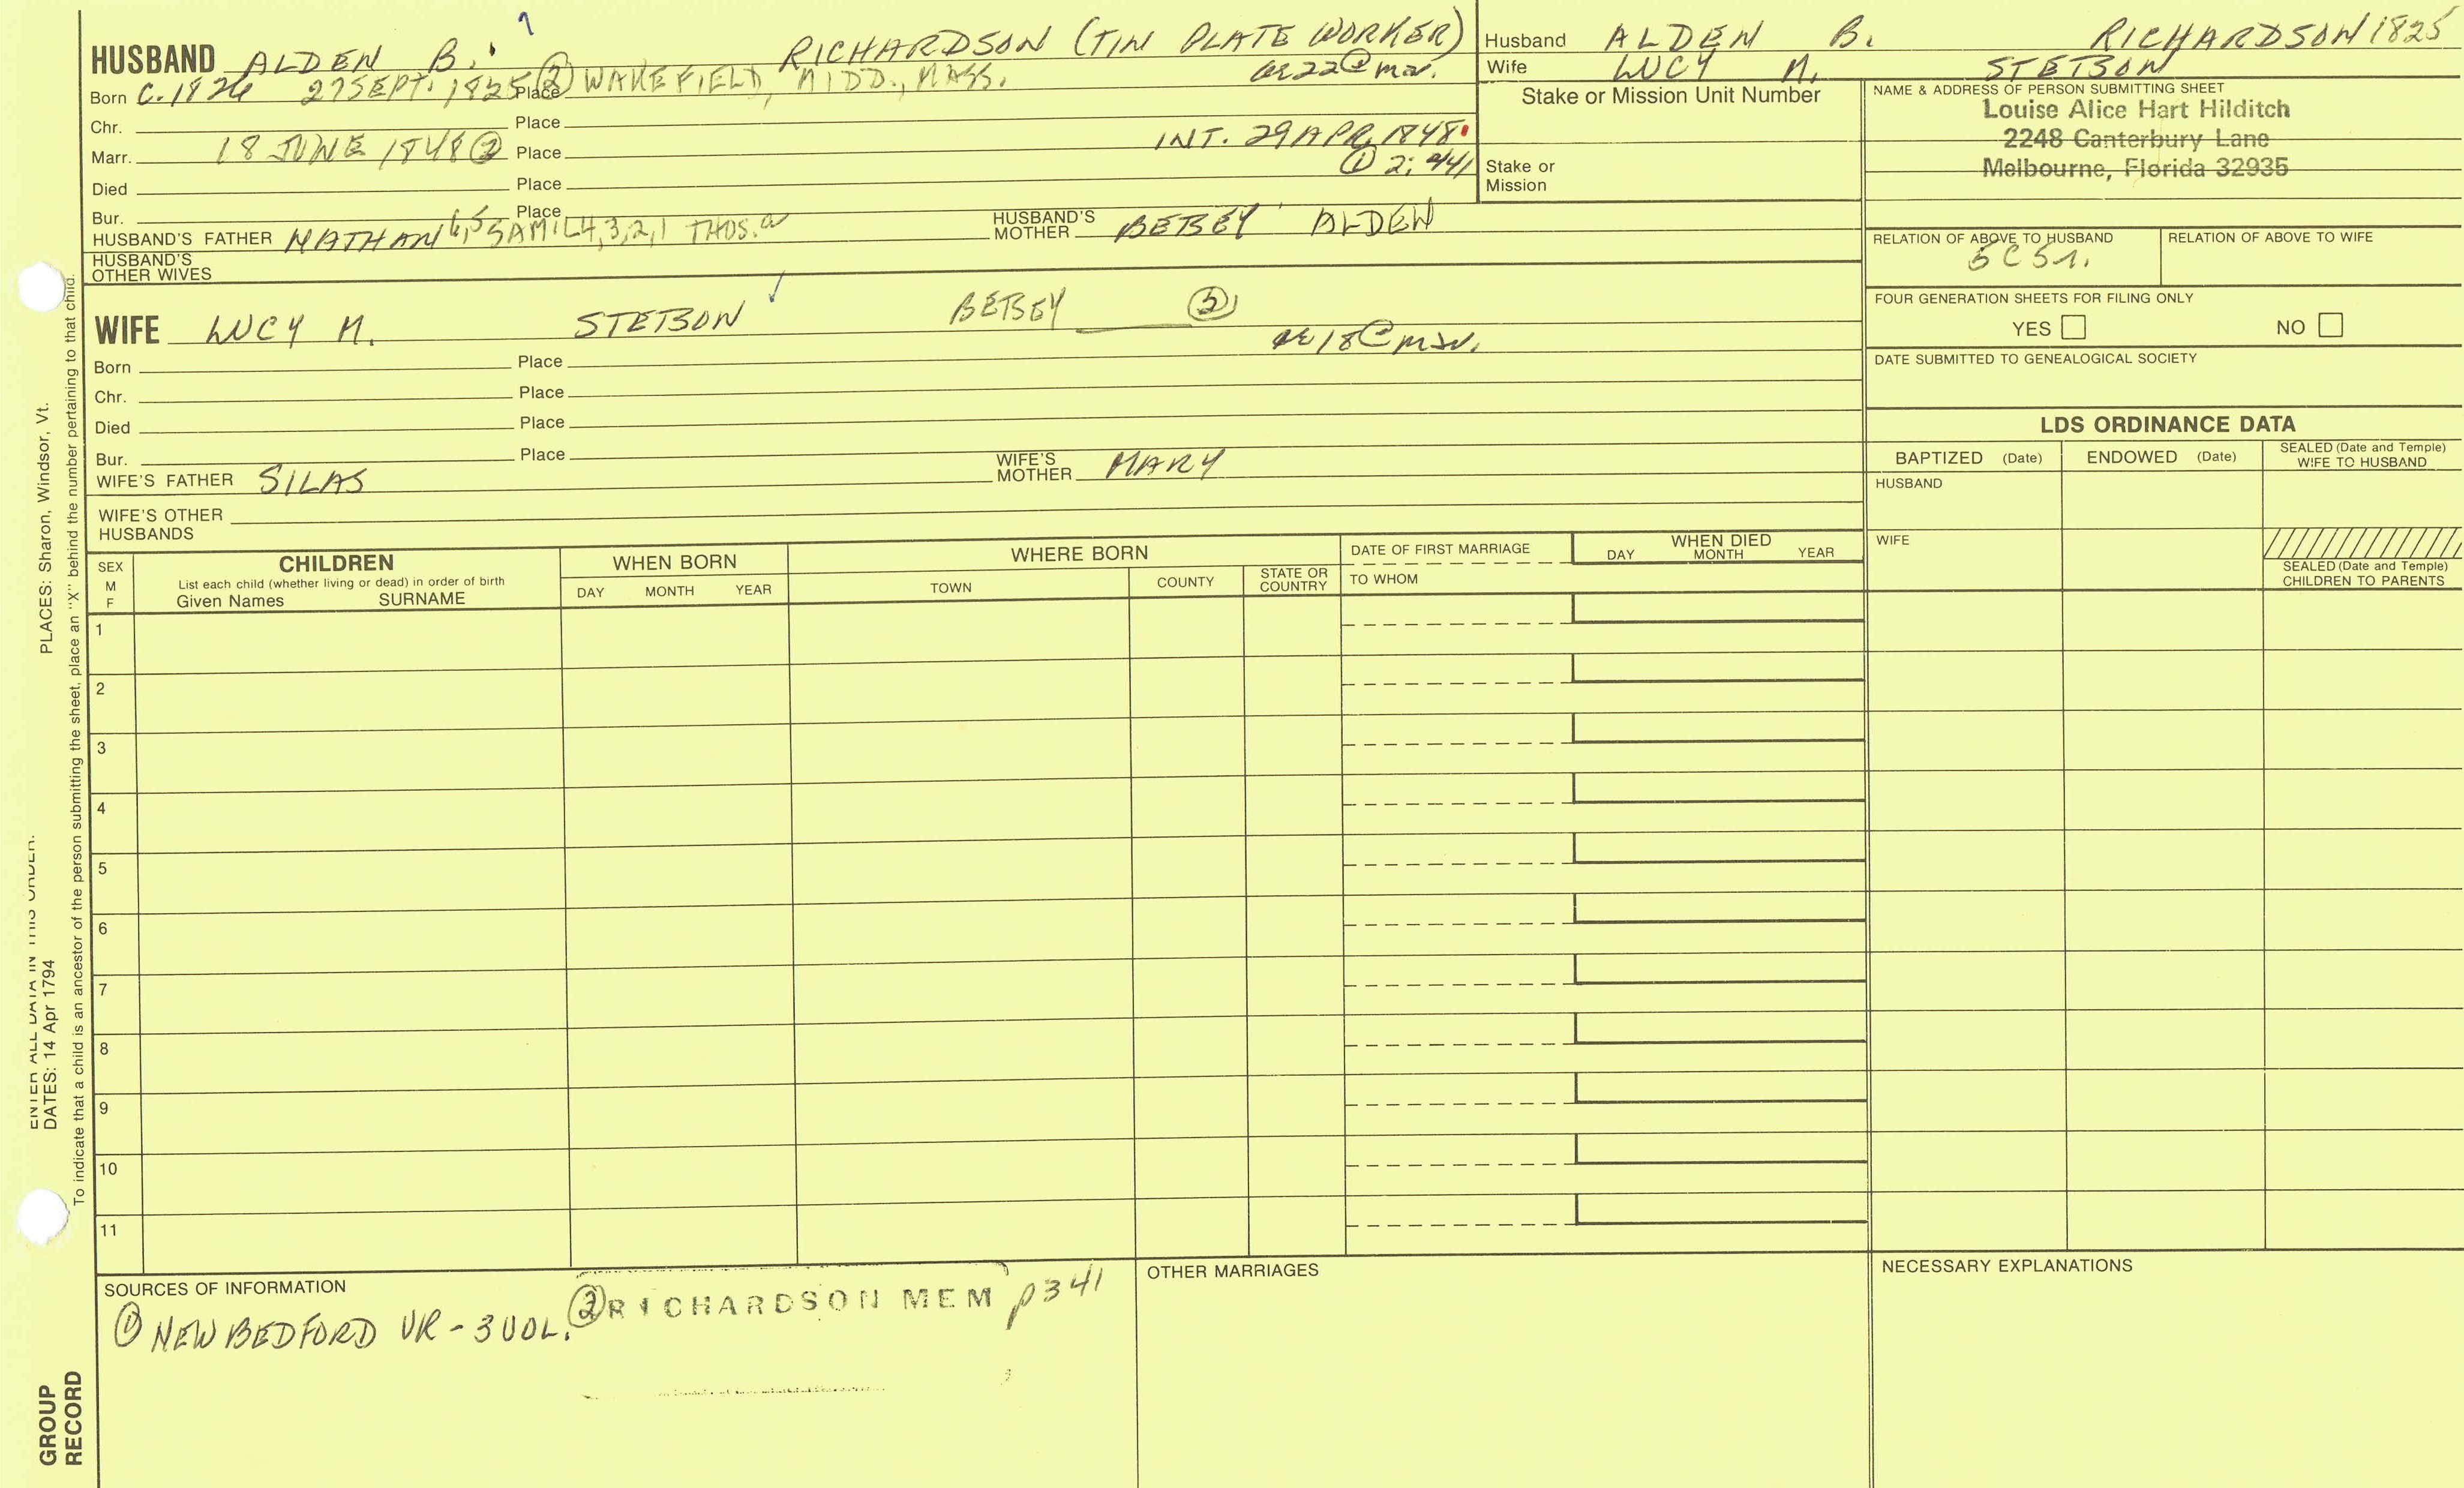 HUSBAND ALDEN B. RICHARDSON (TIN PLATE WORKER)
Born C. 1826 27 SEPT. 1825 ② Place WAKEFIELD, MIDD., MASS. ae 22 @ mar.
Chr. Place
Marr. 18 JUNE 1848 ② Place INT. 29 APR. 1848
① 2: 441
Died Place
Bur. Place
HUSBAND'S FATHER NATHAN 6,5 SAML 4,3,2,1 THOS. a HUSBAND'S MOTHER BETSEY ALDEN
HUSBAND'S OTHER WIVES
WIFE LUCY M. STETSON BETSEY ②
ae 18 @ mar.
Born Place
Chr. Place
Died Place
Bur. Place
WIFE'S FATHER SILAS WIFE'S MOTHER MARY
WIFE'S OTHER HUSBANDS
Husband ALDEN B. RICHARDSON 1825
Wife LUCY M. STETSON
Stake or Mission Unit Number
Stake or
Mission
NAME & ADDRESS OF PERSON SUBMITTING SHEET
Louise Alice Hart Hilditch
2248 Canterbury Lane
Melbourne, Florida 32935
RELATION OF ABOVE TO HUSBAND RELATION OF ABOVE TO WIFE
5C 5R.
FOUR GENERATION SHEETS FOR FILING ONLY
YES NO
DATE SUBMITTED TO GENEALOGICAL SOCIETY
LDS ORDINANCE DATA
BAPTIZED (Date) ENDOWED (Date) SEALED (Date and Temple) WIFE TO HUSBAND
HUSBAND
WIFE
SEALED (Date and Temple)
CHILDREN TO PARENTS
SEX
M
F
CHILDREN
List each child (whether living or dead) in order of birth
Given Names SURNAME
WHEN BORN
DAY MONTH YEAR
WHERE BORN
TOWN COUNTY STATE OR COUNTRY
DATE OF FIRST MARRIAGE
TO WHOM
WHEN DIED
DAY MONTH YEAR
1
2
3
4
5
6
7
8
9
10
11
SOURCES OF INFORMATION
① NEW BEDFORD VR - 3 VOL. ② RICHARDSON MEM p341
OTHER MARRIAGES
NECESSARY EXPLANATIONS
ENTER ALL DATA IN THIS ORDER:
DATES: 14 Apr 1794 PLACES: Sharon, Windsor, Vt.
To indicate that a child is an ancestor of the person submitting the sheet, place an "X" behind the number pertaining to that child.
GROUP
RECORD